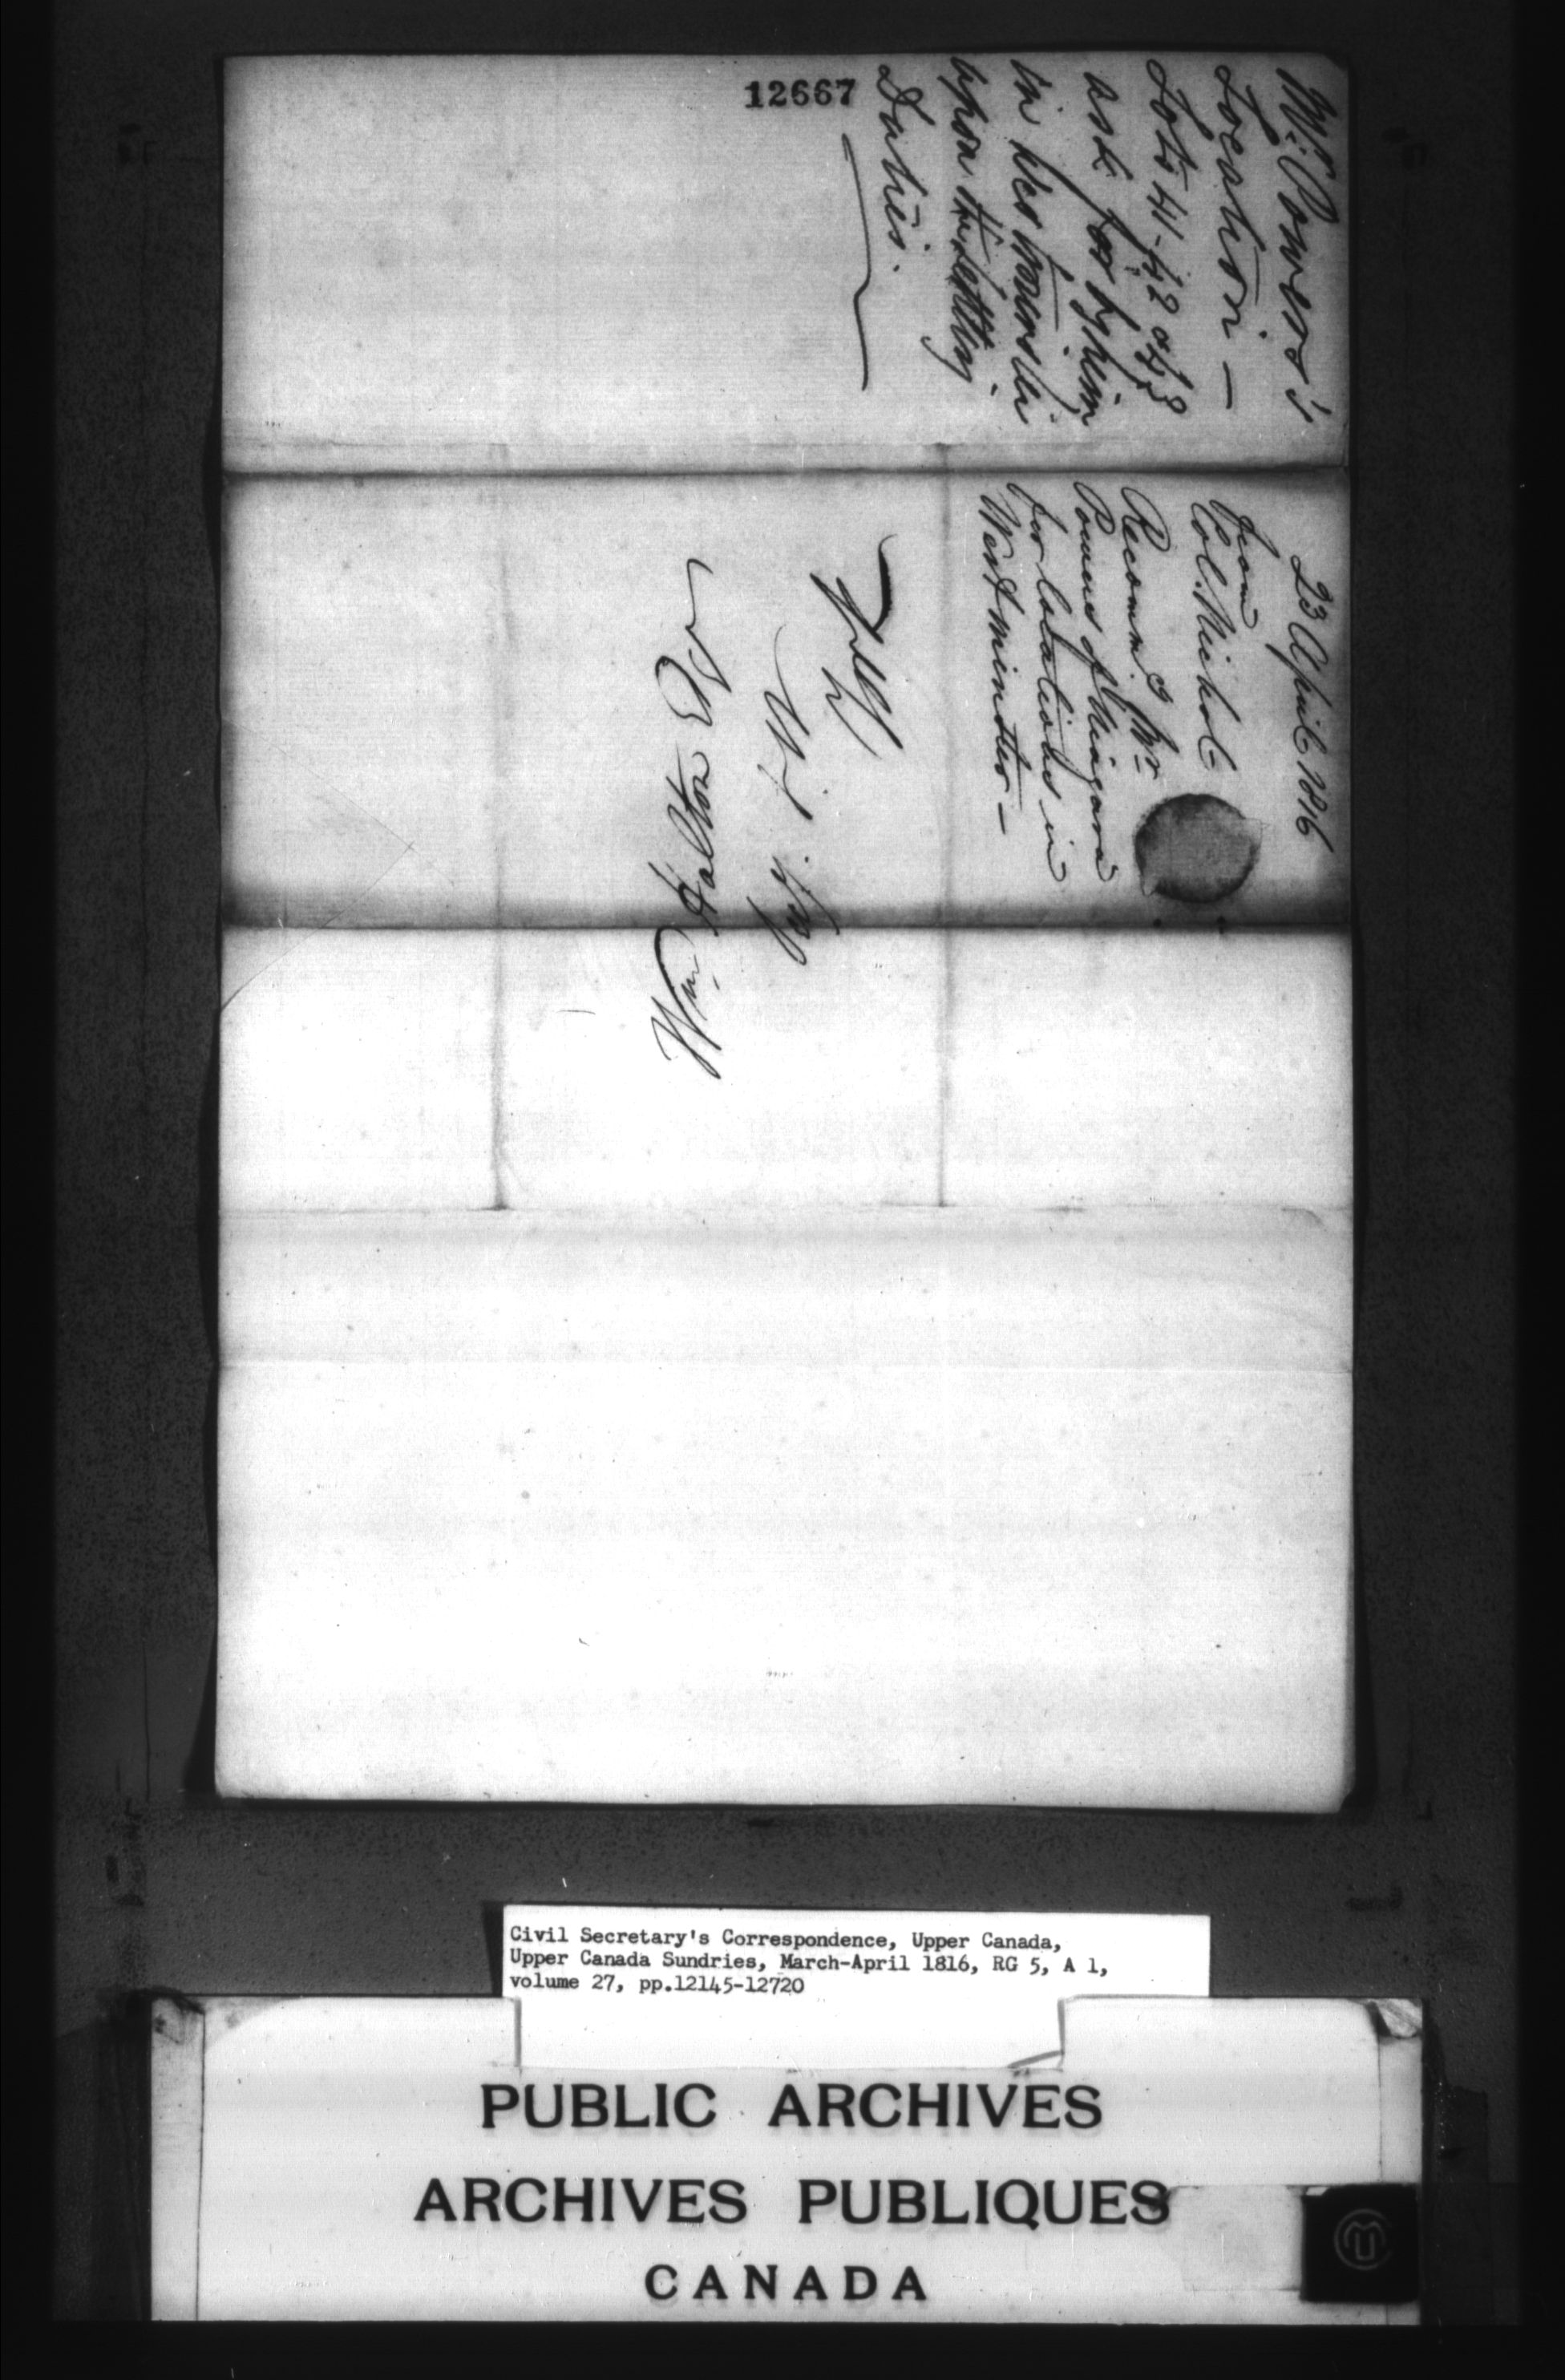 12667
Mr. Powers's
Location —
Lots 41-42 & 43
ask for by him
in Westminster
upon the settling
Duties.
23 April 1816
from
Col. Nichol
Recommd Mr
Powers of Niagara
for locations in
Westminster —
Wm Halton Esqr
Civil Secretary's Correspondence, Upper Canada,
Upper Canada Sundries, March-April 1816, RG 5, A 1,
volume 27, pp.12145-12720
PUBLIC ARCHIVES
ARCHIVES PUBLIQUES
CANADA